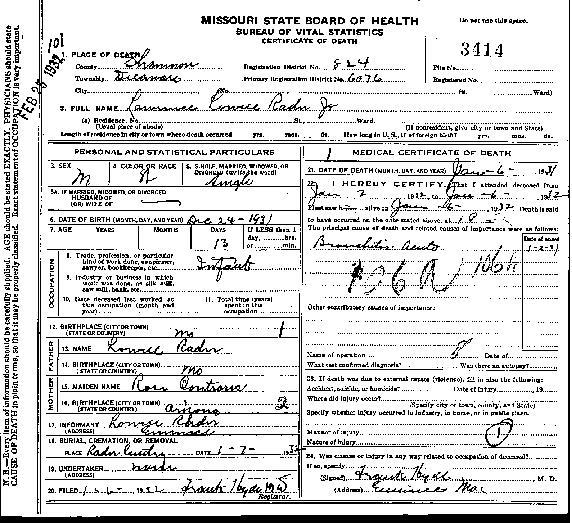 MISSOURI STATE BOARD OF HEALTH
BUREAU OF VITAL STATISTICS
CERTIFICATE OF DEATH
Do not use this space.
3414
101
FEB 25 1932
N. B.—Every item of information should be carefully supplied. AGE should be stated EXACTLY. PHYSICIANS should state
CAUSE OF DEATH in plain terms, so that it may be properly classified. Exact statement of OCCUPATION is very important.
1. PLACE OF DEATH
County Shannon Registration District No. 824 File No.
Township Delaware Primary Registration District No. 6076 Registered No.
City No. St. Ward)
2. FULL NAME Radir Jr
(a) Residence. No. St. Ward.
(Usual place of abode) (If nonresident, give city or town and State)
Length of residence in city or town where death occurred yrs. mos. ds. How long in U. S., if of foreign birth? yrs. mos. ds.
PERSONAL AND STATISTICAL PARTICULARS
3. SEX M
4. COLOR OR RACE W
5. SINGLE, MARRIED, WIDOWED, OR DIVORCED (write the word) Single
5A. IF MARRIED, WIDOWED, OR DIVORCED
HUSBAND OF
(OR) WIFE OF
6. DATE OF BIRTH (MONTH, DAY, AND YEAR) Dec 24-1931
7. AGE YEARS MONTHS DAYS 13 If LESS than 1 day, hrs. or min.
OCCUPATION
8. Trade, profession, or particular kind of work done, as spinner, sawyer, bookkeeper, etc. Infant
9. Industry or business in which work was done, as silk mill, saw mill, bank, etc.
10. Date deceased last worked at this occupation (month and year)
11. Total time (years) spent in this occupation
12. BIRTHPLACE (CITY OR TOWN)
(STATE OR COUNTRY) Mo 1
FATHER
13. NAME Radir
14. BIRTHPLACE (CITY OR TOWN)
(STATE OR COUNTRY) Mo
MOTHER
15. MAIDEN NAME Rosa
16. BIRTHPLACE (CITY OR TOWN)
(STATE OR COUNTRY) Arizona 2
17. INFORMANT Radir
(ADDRESS) Eminence
18. BURIAL, CREMATION, OR REMOVAL
PLACE DATE 1-7- 1932
19. UNDERTAKER none
(ADDRESS)
20. FILED 1932 Frank Hyde MD
Registrar.
MEDICAL CERTIFICATE OF DEATH
21. DATE OF DEATH (MONTH, DAY, AND YEAR) Jan-6- 1931
22. I HEREBY CERTIFY, That I attended deceased from
Jan 2 1932, to Jan-6- 1932
I last saw alive on Jan-6- 1932 Death is said
to have occurred on the date stated above, at 8 m.
The principal cause of death and related causes of importance were as follows:
Date of onset
Bronchitis acute 1-2-31
106A 106A
Other contributory causes of importance:
Name of operation Date of
What test confirmed diagnosis? Was there an autopsy?
23. If death was due to external causes (violence), fill in also the following:
Accident, suicide, or homicide? Date of injury 19
Where did injury occur?
(Specify city or town, county, and State)
Specify whether injury occurred in industry, in home, or in public place.
Manner of injury
Nature of injury
1
24. Was disease or injury in any way related to occupation of deceased?
If so, specify
(Signed) Frank Hyde, M. D.
(Address) Eminence Mo.